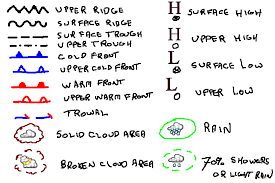 UPPER RIDGE
SURFACE RIDGE
SURFACE TROUGH
UPPER TROUGH
COLD FRONT
UPPER COLD FRONT
WARM FRONT
UPPER WARM FRONT
TROWAL
SOLID CLOUD AREA
BROKEN CLOUD AREA
H SURFACE HIGH
H UPPER HIGH
L SURFACE LOW
L UPPER LOW
RAIN
70% SHOWERS
OR LIGHT RAIN